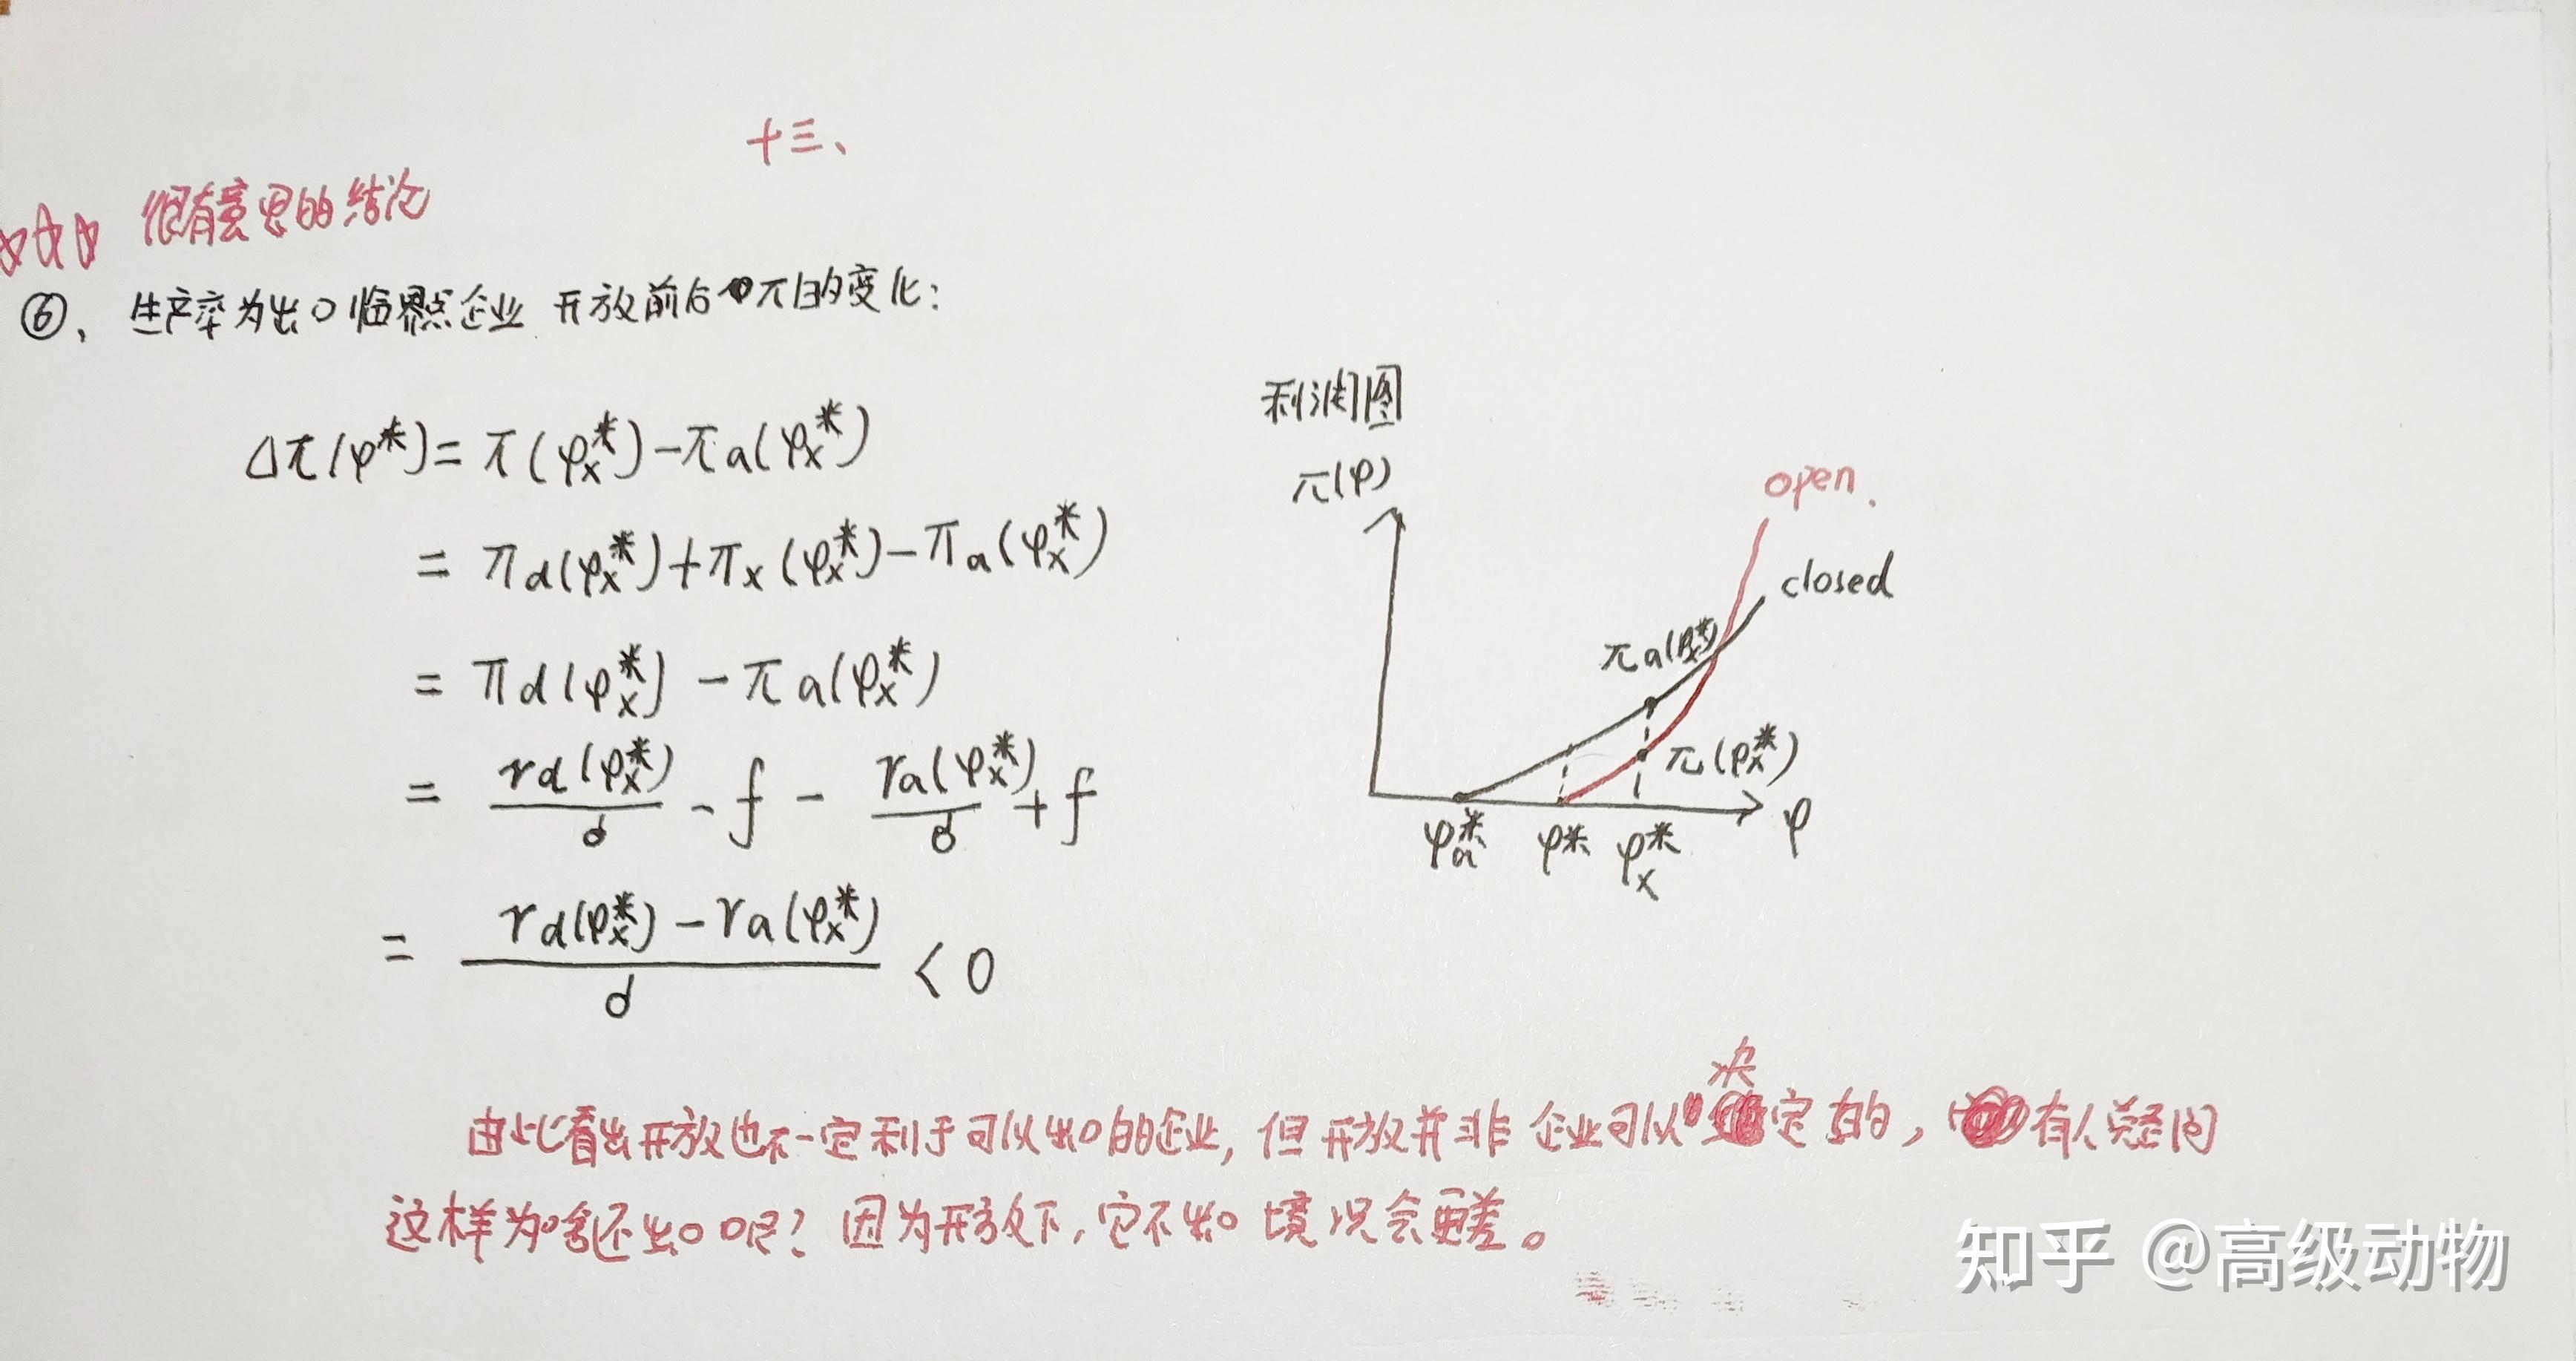 十三、
很有意思的结论
⑥、生产率为出口临界点企业 开放前后π的变化：
Δπ(φ*) = π(φx*) - πa(φx*)
= πd(φx*) + πx(φx*) - πa(φx*)
= πd(φx*) - πa(φx*)
= rd(φx*)/σ - f - ra(φx*)/σ + f
= (rd(φx*) - ra(φx*))/σ < 0
利润图
π(φ)
open.
closed
πa(φx*)
π(φx*)
φa* φ* φx* φ
由此看出开放也不一定利于可以出口的企业，但开放并非企业可以决定的，有人疑问
这样为啥还出口呢？因为开放下，它不出口 境况会更差。
知乎 @高级动物